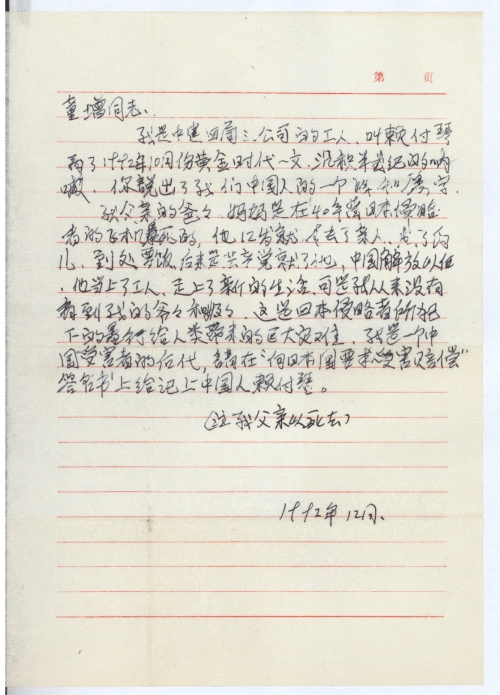 第 页
童增同志、
我是中建四局三公司的工人、叫赖付琴
看了1992年10月份黄金时代一文、沉积半世纪的呐
喊、你说出了我们中国人的一个
我父亲的爸爸、妈妈是在40年 日本侵略
者的飞机 死的、他12岁就失去了亲人、成了孤
儿、到处要饭、后来是共产党救了他、中国解放以后
、他当上了工人、走上了新的生活、可是我从来没有
看到了我的爷爷和奶奶、这是日本侵略者所犯
下的暴行给人类带来的巨大灾难、我是一个中
国受害者的后代、请在“向日本国要求受害赔偿”
签名书上给记上中国人赖付琴。
（注我父亲以死去）
1992年12月.